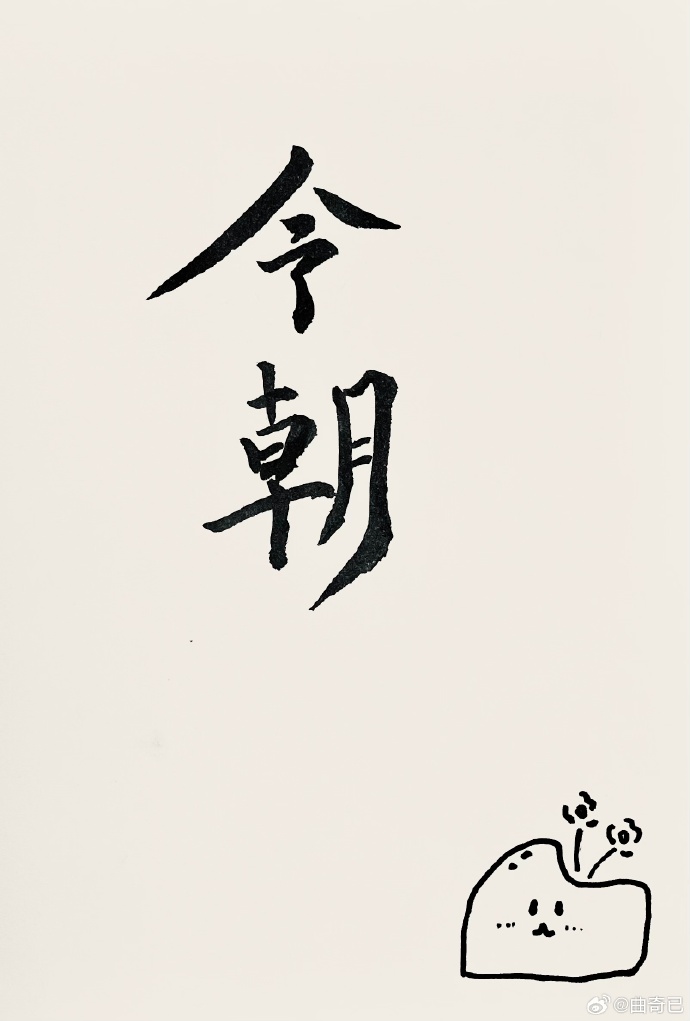 今朝
@曲奇己